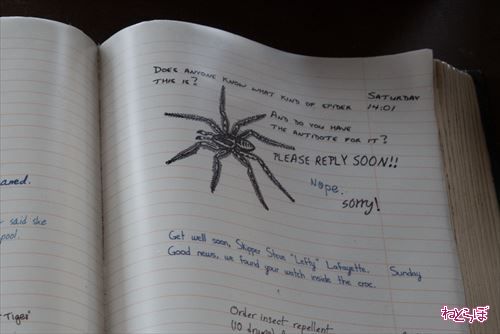 amed.
said she
pool.
Tiger"
DOES ANYONE KNOW WHAT KIND OF SPIDER
THIS IS?
SATURDAY
14:01
AND DO YOU HAVE
THE ANTIDOTE FOR IT?
PLEASE REPLY SOON!!
Nope.
sorry!
Get well soon, Skipper Steve "Lefty" Lafayette.
Good news, we found your watch inside the croc.
Sunday
Order insect repellent
ねとらぼ